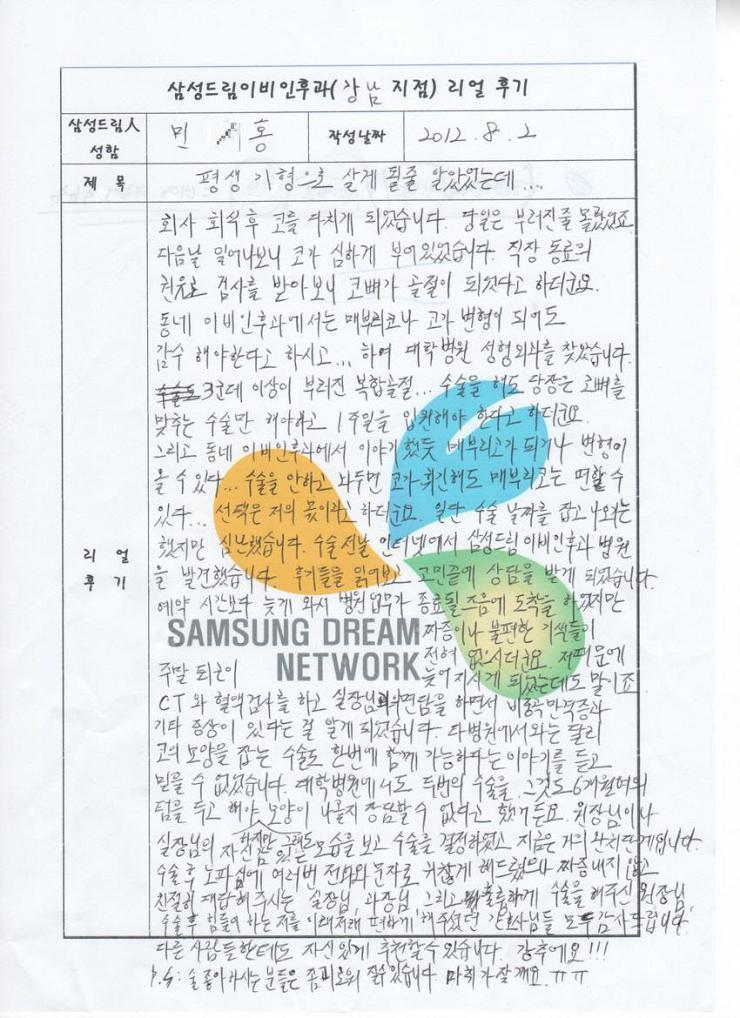 삼성드림이비인후과(강남 지점) 리얼 후기
삼성드림人 성함 민 홍 작성날짜 2012. 8. 2
제 목 평생 기형으로 살게 될줄 알았었는데...
리 얼 후 기
회사 회식후 코를 다치게 되었습니다. 당일은 부러진줄 몰랐었죠
다음날 일어나보니 코가 심하게 부어있었습니다. 직장 동료의
권유로 검사를 받아보니 코뼈가 골절이 되었다고 하더군요.
동네 이비인후과에서는 매부리코나 코가 변형이 되어도
감수 해야한다고 하시고... 하여 대학병원 성형외과를 찾았습니다.
3군데 이상이 부러진 복합골절... 수술을 해도 당장은 코뼈를
맞추는 수술만 해야하고 1주일을 입원해야 한다고 하더군요.
그리고 동네 이비인후과에서 이야기 했듯 매부리코가 되거나 변형이
올 수 있다... 수술을 안하고 놔두면 코가 휘긴해도 매부리코는 면할 수
있다... 선택은 저의 몫이라고 하더군요. 일단 수술 날짜를 잡고 나와는
했지만 심난했습니다. 수술전날 인터넷에서 삼성드림이비인후과 병원
을 발견했습니다. 후기들을 읽어보고 고민끝에 상담을 받게 되었습니다.
예약 시간보다 늦게 와서 병원업무가 종료될 즈음에 도착을 하였지만
SAMSUNG DREAM
NETWORK
짜증이나 불편한 기색들이
전혀 없으시더군요. 저때문에
주말 퇴근이 늦어지시게 되었는데도 말이죠
CT와 혈액검사를 하고 실장님과의 면담을 하면서 비중격만곡증과
기타 증상이 있다는 걸 알게 되었습니다. 타병원에서와는 달리
코의 모양을 잡는 수술도 한번에 함께 가능하다는 이야기를 듣고
믿을 수 없었습니다. 대학병원에서도 두번의 수술을 그것도 6개월여의
텀을 두고 해야 모양이 나올지 장담할 수 없다고 했거든요. 원장님이나
실장님의 자신감 있는 모습을 보고 수술을 결정하였고 지금은 거의 완치단계입니다.
하지만 그래도
수술후 노파심에 여러번 전화와 문자로 귀찮게 해드렸으나 짜증내지 않고
친절히 대답해 주시는 실장님, 과장님, 그리고 훌륭하게 수술을 해주신 원장님,
수술후 힘들어 하는 저를 이래저래 편하게 해주셨던 간호사님들 모두 감사드립니다.
다른 사람들한테도 자신있게 추천할수 있습니다. 강추에요!!!
P.S: 술 좋아하시는 분들은 좀 괴로워 질수 있습니다 마취가 잘 깨요. ㅠㅠ